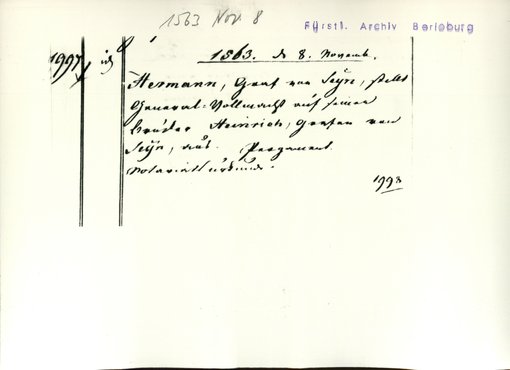 1563 Nov. 8
Fürstl. Archiv Berleburg
1997
1563. d 8. Novemb.
Hermann, Graf von Seÿn, stellt
General-Vollmacht auf seinen
bruder Heinrich, Grafen von
Seÿn, aus. Pergament.
Notariatsurkunde.
1998